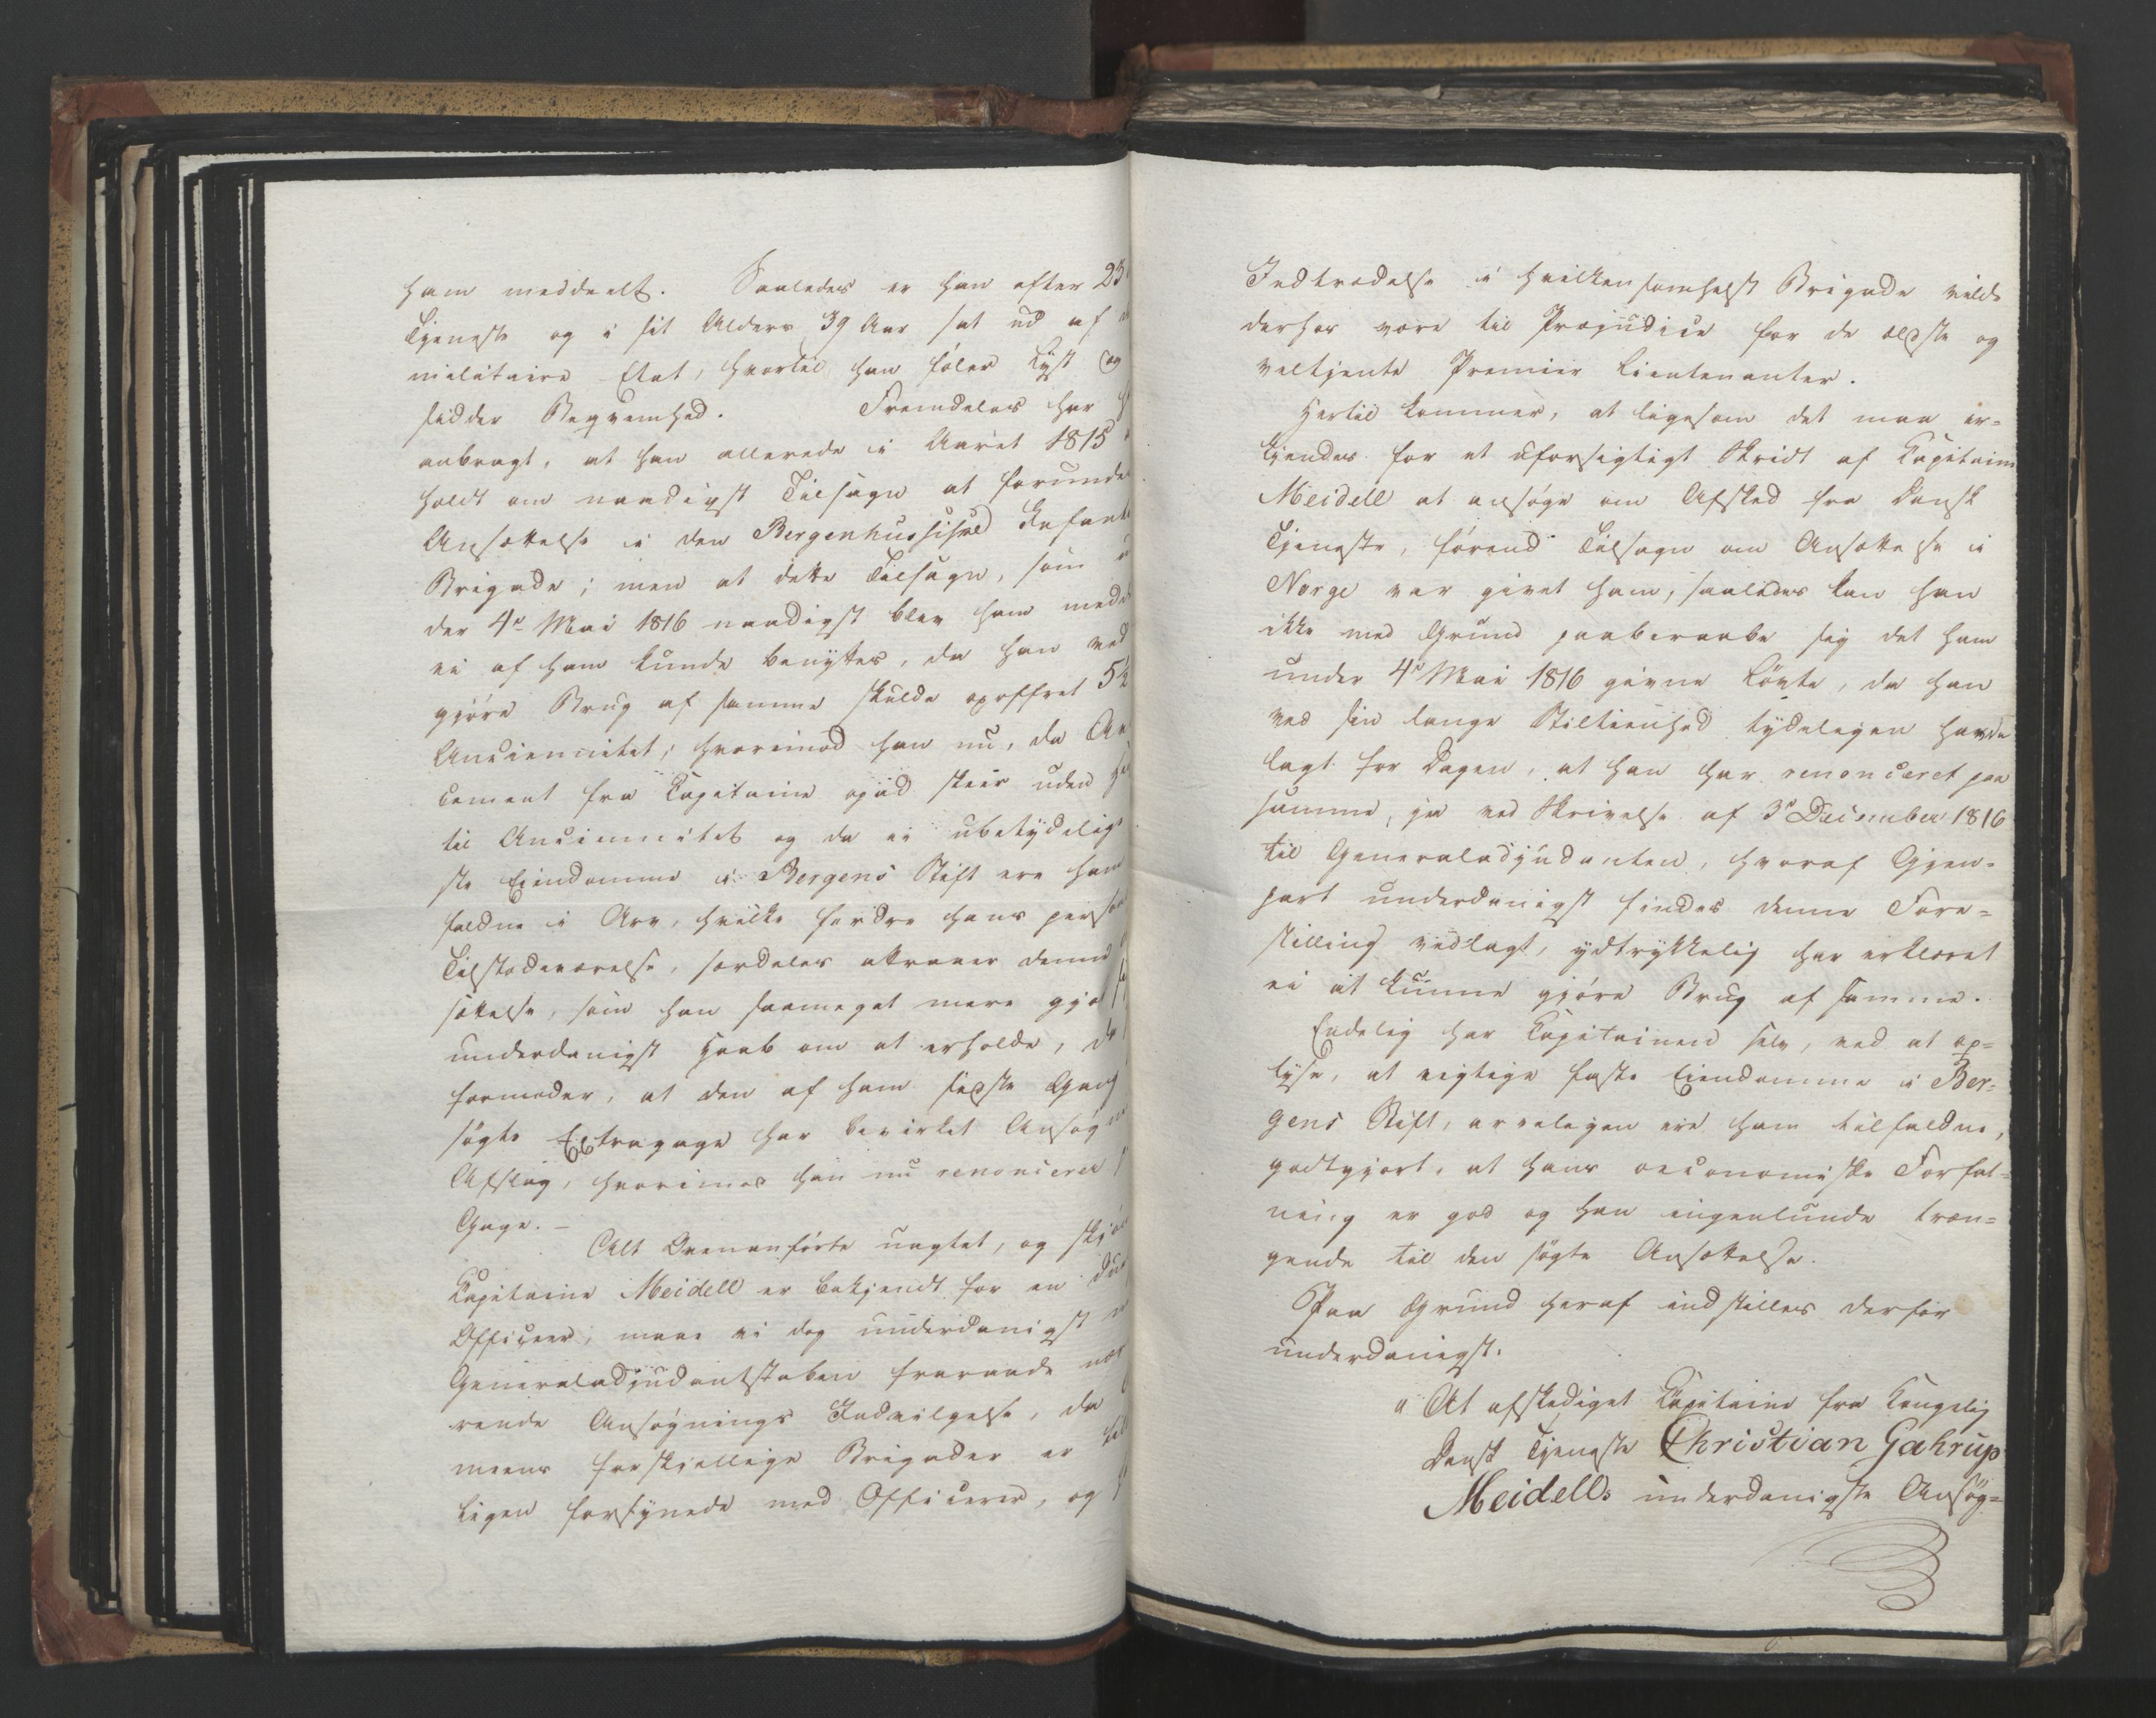 ham meddeelt. Saaledes er han efter 25
Tjeneste og i sit Alders 39 Aar sat ud af
militaire Etat, hvortil han føler Lyst og
sidder Beqvemhed. Fremdeles har
anbragt, at han allerede i Aaret 1815
holdt om naadigst Tilsagn at forunde
Ansættelse i den Bergenhusiske Infante
Brigade; men at dette Tilsagn, som
der 4de Mai 1816 naadigst blev ham medd
ei af ham kunde benyttes, da han ved
gjöre Brug af samme skulde opoffret 5½
Anciennitet; hvorimod han nu, da Av
cement fra Capitaine opad skeer uden He
til Anciennitet og da ei ubetydelig
ste Eiendomme i Bergens Stift ere ham
faldne i Arv, hvilke fordre hans person
Tilstædeværelse, særdeles attraaer denne
sættelse, som han saameget mere gjø
underdanigst Haab om at erholde, da
formoder, at den af ham sidste Gang
søgte Extragage har bevirket Ansøgn
Afslag, hvorimod han nu renoncerer
Gage. –
Alt Ovenanførte uagtet, og skjön
Capitaine Meidell er bekjendt for en du
Officeer, maae vi dog underdanigst
Generaladjudantstaben fraraade nær
rende Ansøgnings Indvilgelse, da
meens forskjellige Brigader er til
ligen forsynede med Officerer, og
Indtrædelse i hvilkensomhelst Brigade vilde
derhos være til Præjudice for de ældste og
veltjente Premier Lieutenanter.
Hertil kommer, at ligesom det maa er=
kjendes for et uforsigtigt Skridt af Capitaine
Meidell at ansøge om Afsked fra Dansk
Tjeneste, førend Tilsagn om Ansættelse i
Norge var givet ham, saaledes kan han
ikke med Grund paaberaabe sig det ham
under 4de Mai 1816 givne Løvte, da han
ved sin lange Stiltienhed tydeligen havde
lagt for Dagen, at han har renonceret paa
samme, ja ved Skrivelse af 3de December 1816
til Generaladjudanten, hvoraf Gjen=
part underdanigst findes denne Fore=
stilling vedlagt, ydtrykkelig har erklæret
ei at kunne gjöre Brug af samme.
Endelig har Capitainen selv, ved at op=
lyse, at vigtige faste Eiendomme i Ber=
gens Stift, arveligen ere ham tilfaldne,
godtgjort, at hans oeconomiske Forfat=
ning er god og han ingenlunde træn=
gende til den søgte Ansættelse.
Paa Grund heraf indstilles derfor
underdanigst:
"At afskediget Capitaine fra Kongelig
Dansk Tjeneste Christian Gahrup
Meidells underdanigste Ansøg=